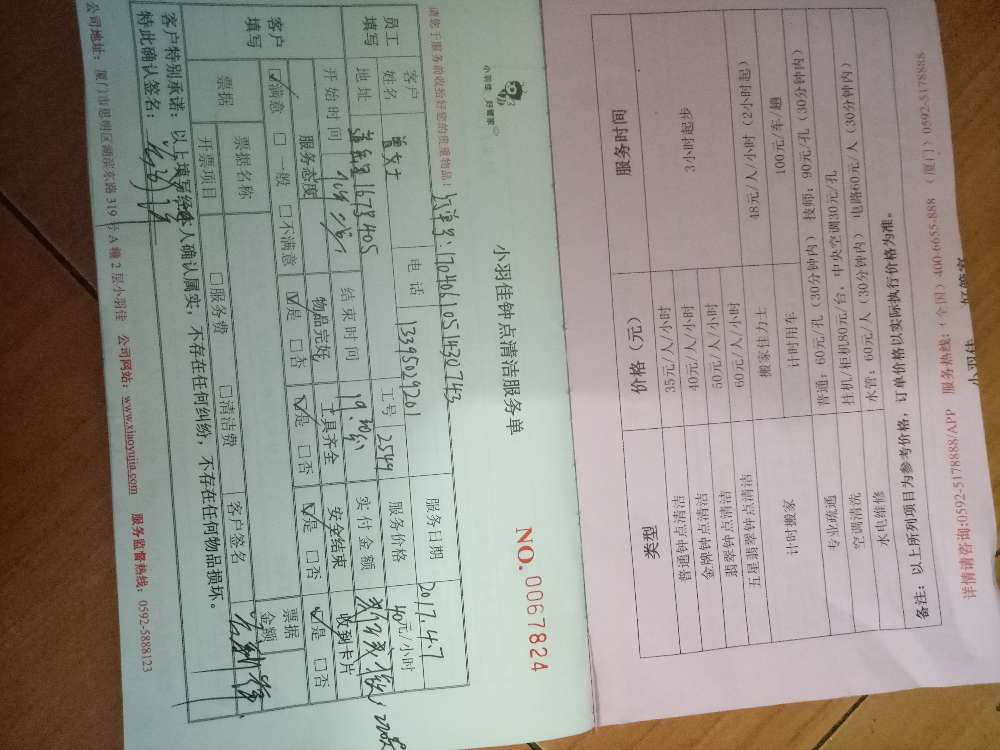 小羽佳 好管家
小羽佳钟点清洁服务单
NO. 0067824
请您于服务前收拾好您的贵重物品！
170406105430743
员工填写
客户姓名
曾女士
电话
13395029201
服务日期
2017.4.7
地址
1678405
工号
2549
服务价格
40元/小时
开始时间
结束时间
实付金额
客户填写
服务态度
物品完好
工具齐全
安全结束
收到卡片
☑满意 □一般 □不满意
☑是 □否
☑是 □否
☑是 □否
☑是 □否
票据
票据名称
□服务费 □清洁费
票据金额
开票项目
客户签名
客户特别承诺：以上填写经本人确认属实，不存在任何纠纷，不存在任何物品损坏。
特此确认签名：
公司地址：厦门市思明区湖滨东路319号A幢2层小羽佳 公司网站：www.xiaoyujia.com 服务监督热线：0592-5888123
类型 价格（元） 服务时间
普通钟点清洁 35元/人/小时 3小时起步
金牌钟点清洁 40元/人/小时
翡翠钟点清洁 50元/人/小时
五星翡翠钟点清洁 60元/人/小时
计时搬家 搬家佳力士 48元/人/小时（2小时起）
计时用车 100元/车/趟
专业疏通 普通：60元/孔（30分钟内） 技师：90元/孔（30分钟内）
空调清洗 挂机/柜机80元/台，中央空调30元/孔
水电维修 水管：60元/人（30分钟内） 电路60元/人（30分钟内）
备注：以上所列项目为参考价格，订单价格以实际执行价格为准。
详情请咨询:0592-5178888/APP 服务热线：（全国）400-6655-888 （厦门）0592-5178888
小羽佳 好管家